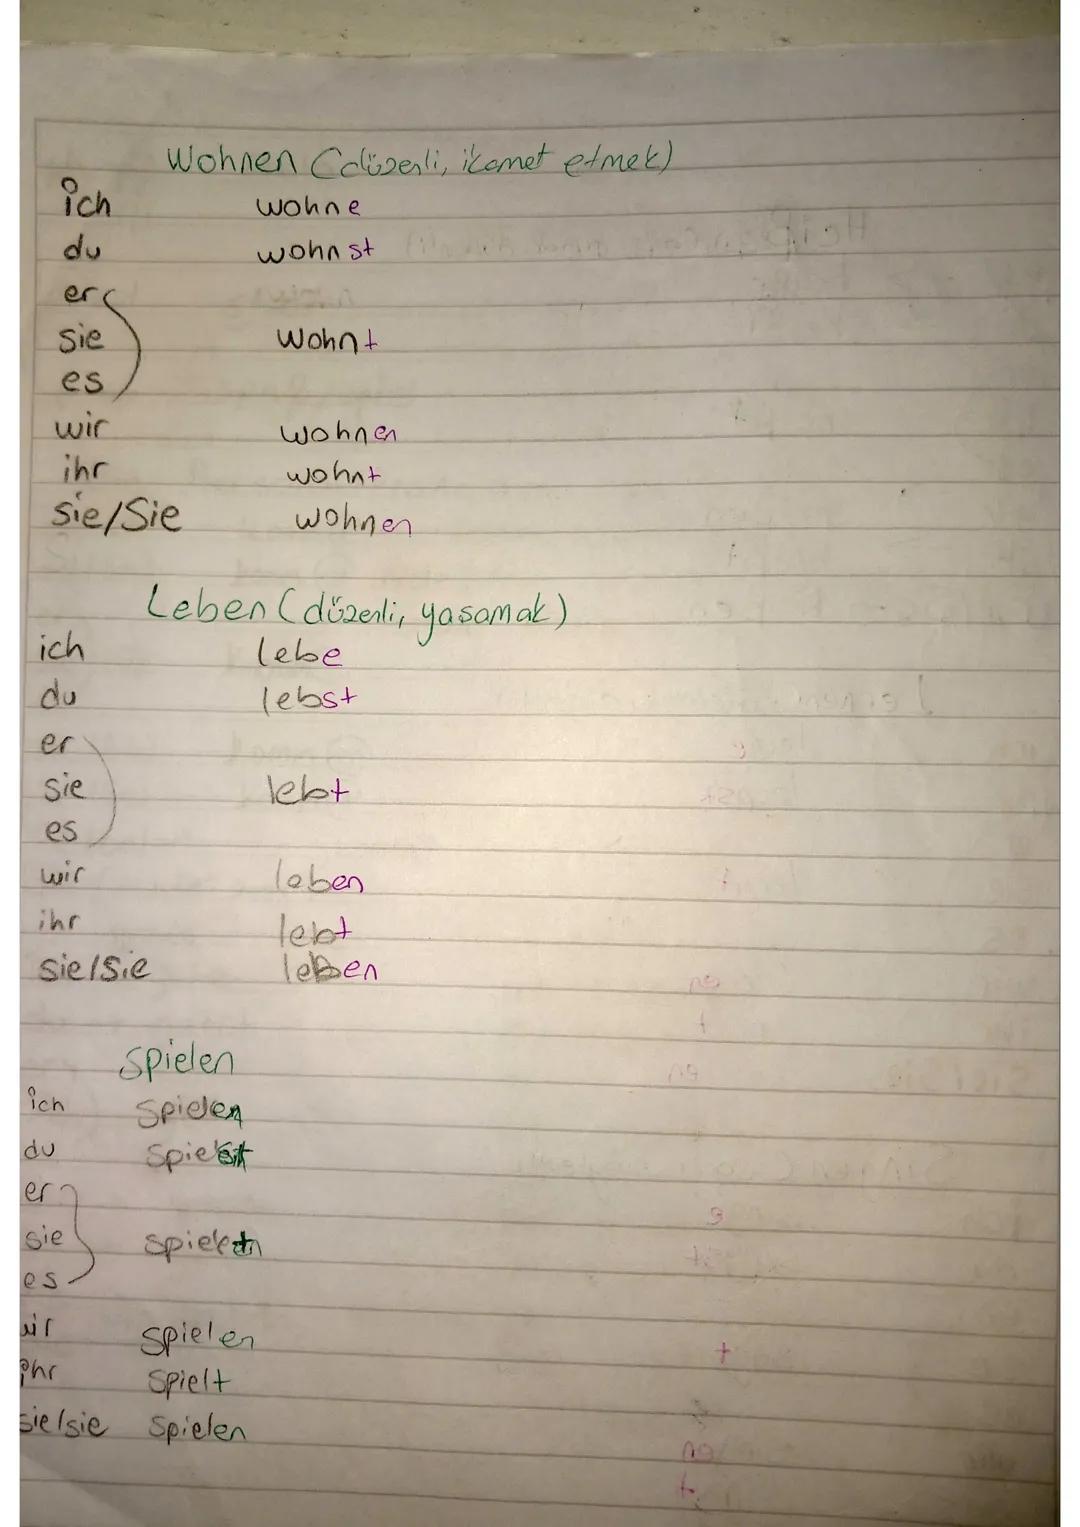 Wohnen (düzenli, ikamet etmek)
ich wohne
du wohnst
er
sie wohnt
es
wir wohnen
ihr wohnt
sie/Sie wohnen
Leben (düzenli, yasamak)
ich lebe
du lebst
er
sie lebt
es
wir leben
ihr lebt
sie/Sie leben
Spielen
ich spielen
du
er
sie
es
wir spielen
ihr spielt
sie/sie spielen